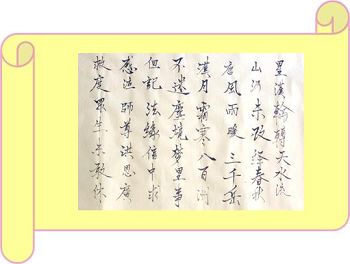 星漢輪轉天水流
山河未改經春秋
唐風雨暖三千岳
漢月霜寒八百洲
不遺塵境夢里事
但記法緣信中求
感 師尊洪恩廣
救度眾生不敢休